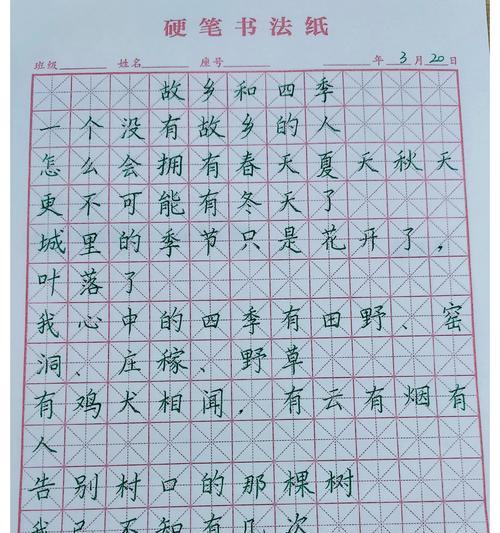 硬笔书法纸
班级 姓名 座号 年 3 月 20 日
故乡和四季
一个没有故乡的人
怎么会拥有春天夏天秋天
更不可能有冬天了
城里的季节只是花开了，
叶落了
我心中的四季有田野、窑
洞、庄稼、野草
有鸡犬相闻，有云有烟有
人
告别村口的那棵树
我已不知有几次